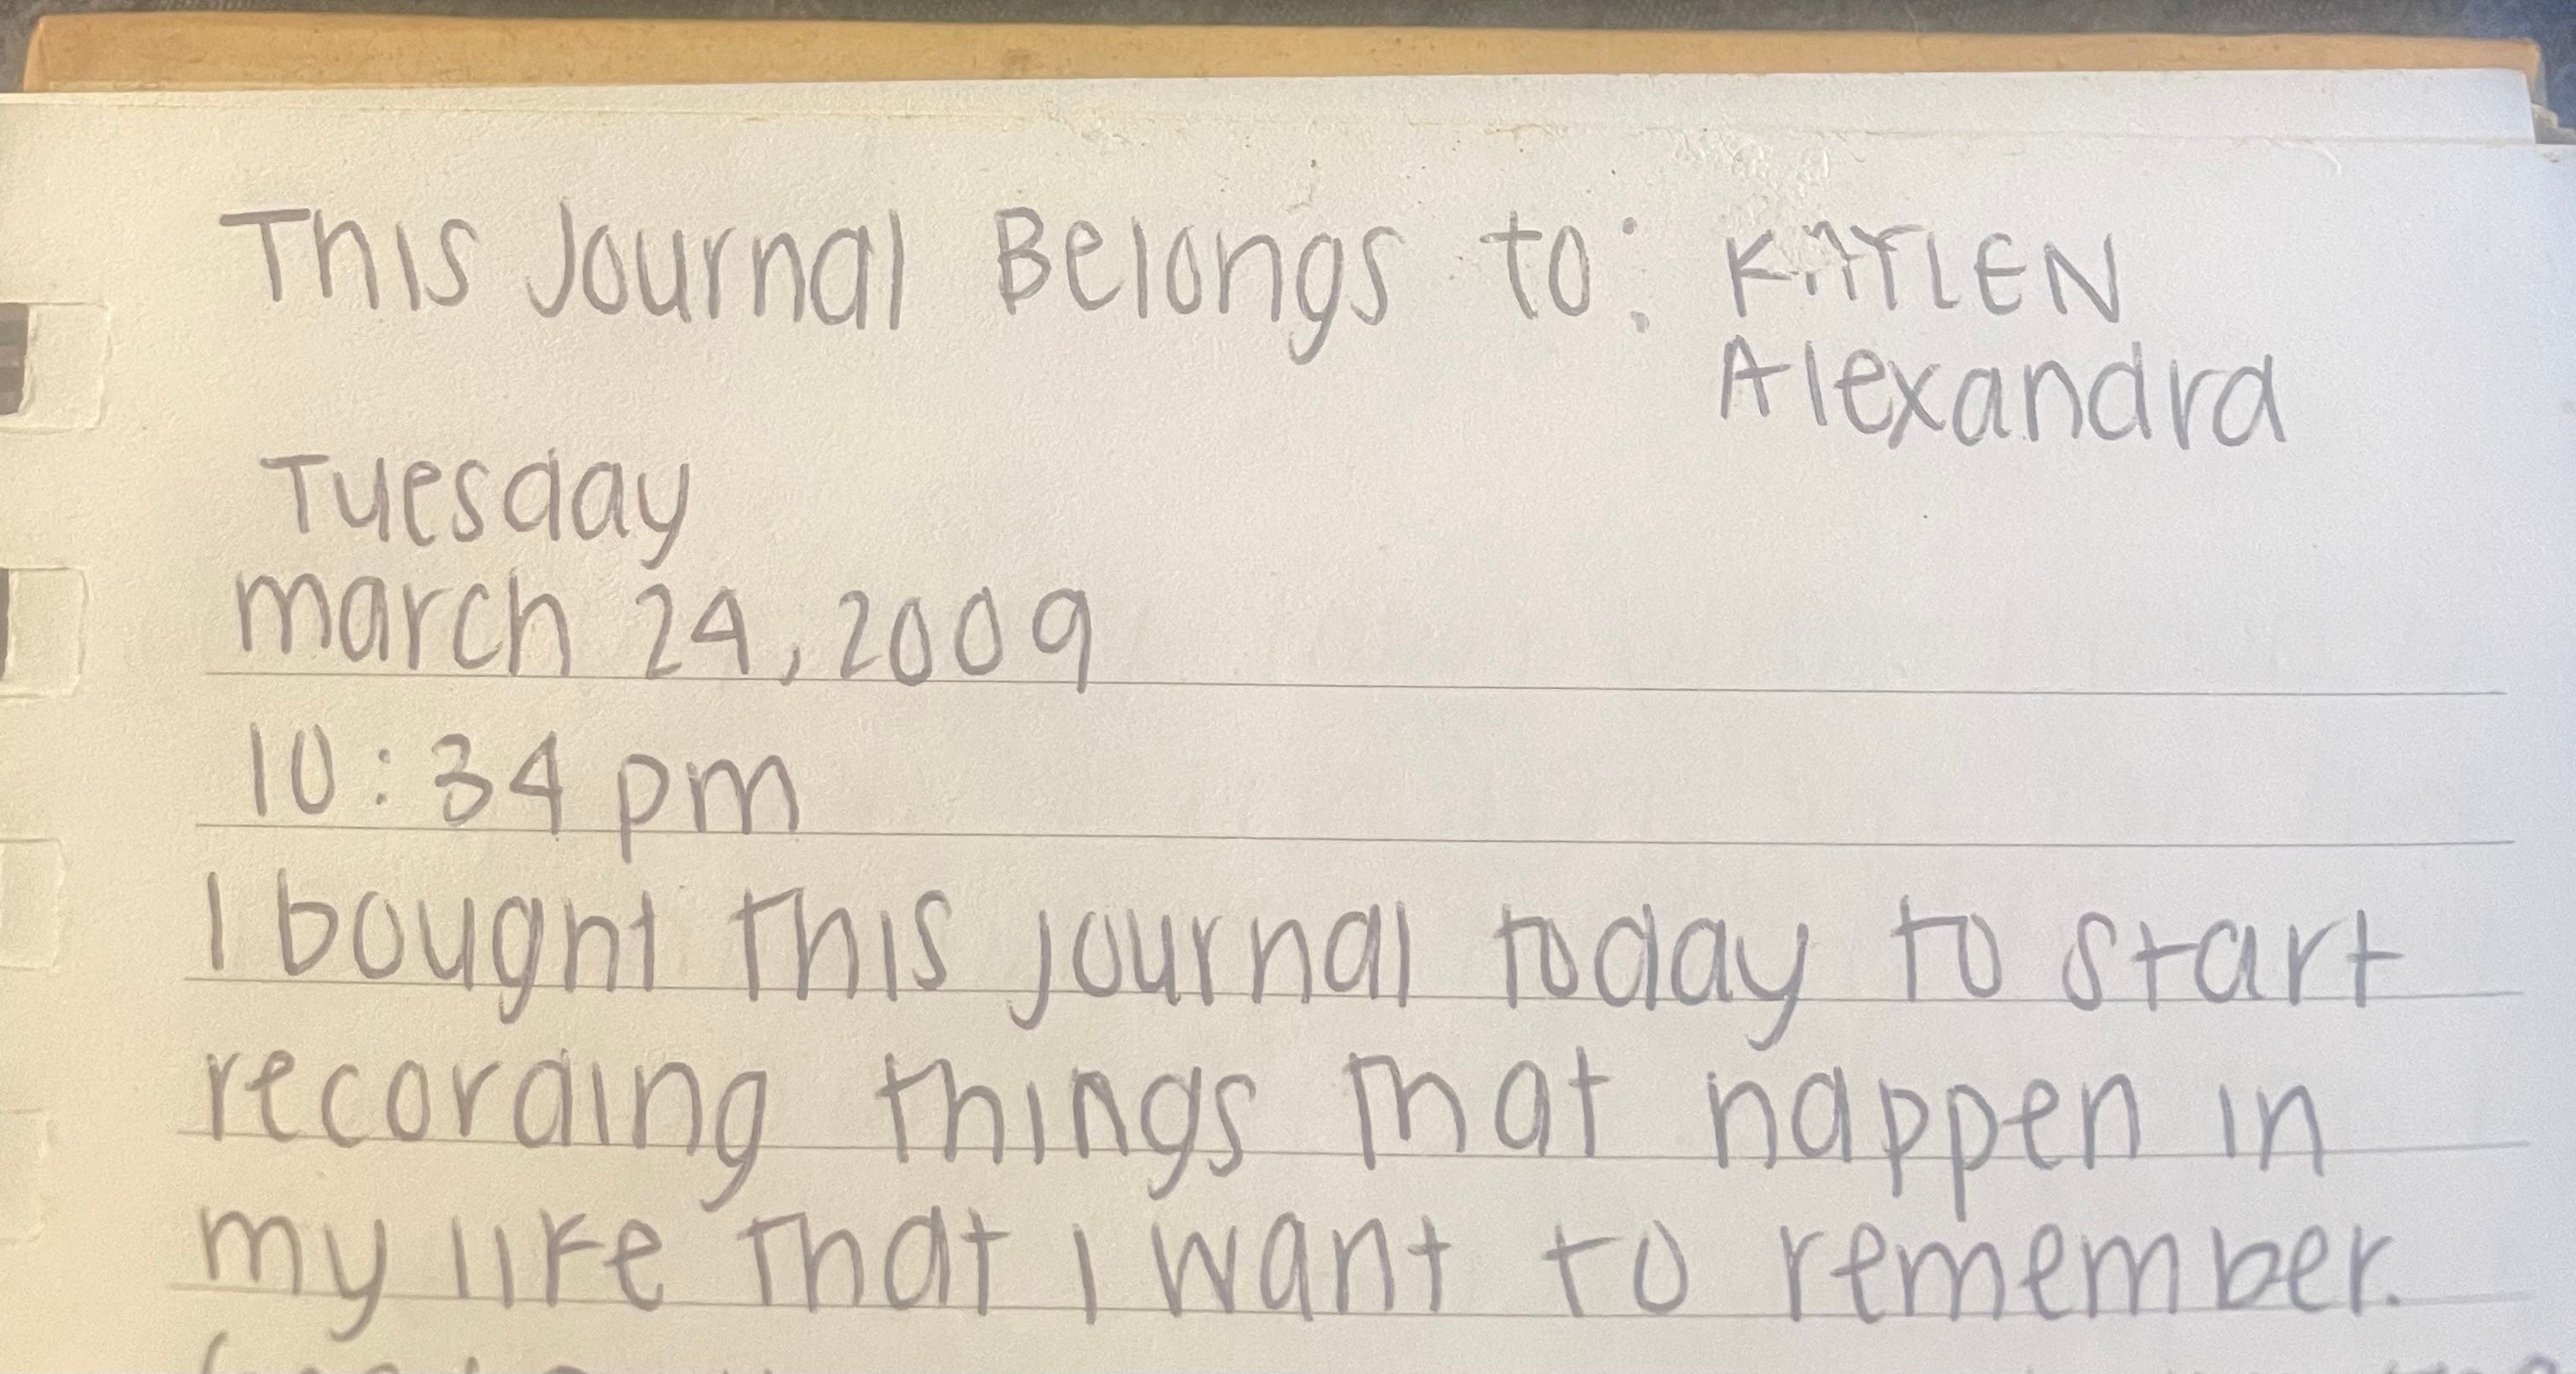 This Journal Belongs to: KAYLEN
Alexandra
Tuesday
march 24, 2009
10:34 pm
I bought this journal today to start
recording things that happen in
my life that I want to remember.